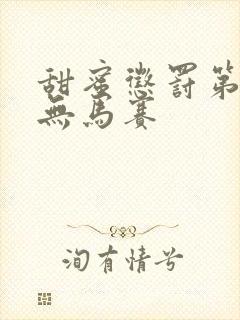 甜蜜懲罰第
無馬賽
洵有情兮